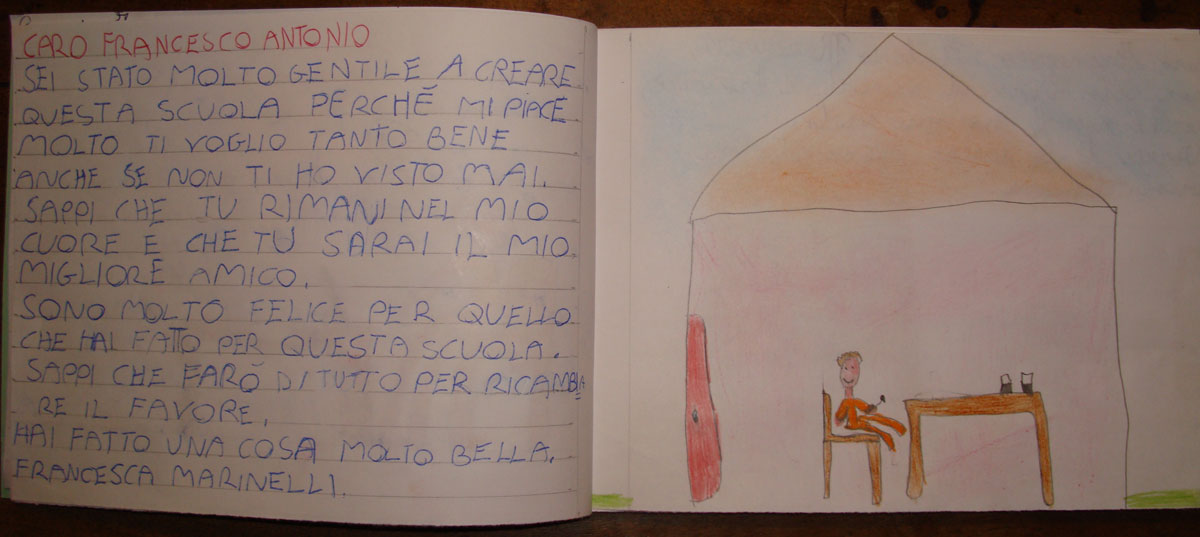 CARO FRANCESCO ANTONIO
SEI STATO MOLTO GENTILE A CREARE
QUESTA SCUOLA PERCHÉ MI PIACE
MOLTO TI VOGLIO TANTO BENE
ANCHE SE NON TI HO VISTO MAI.
SAPPI CHE TU RIMANI NEL MIO
CUORE E CHE TU SARAI IL MIO
MIGLIORE AMICO.
SONO MOLTO FELICE PER QUELLO
CHE HAI FATTO PER QUESTA SCUOLA.
SAPPI CHE FARÒ DI TUTTO PER RICAMBIA
RE IL FAVORE.
HAI FATTO UNA COSA MOLTO BELLA.
FRANCESCA MARINELLI.